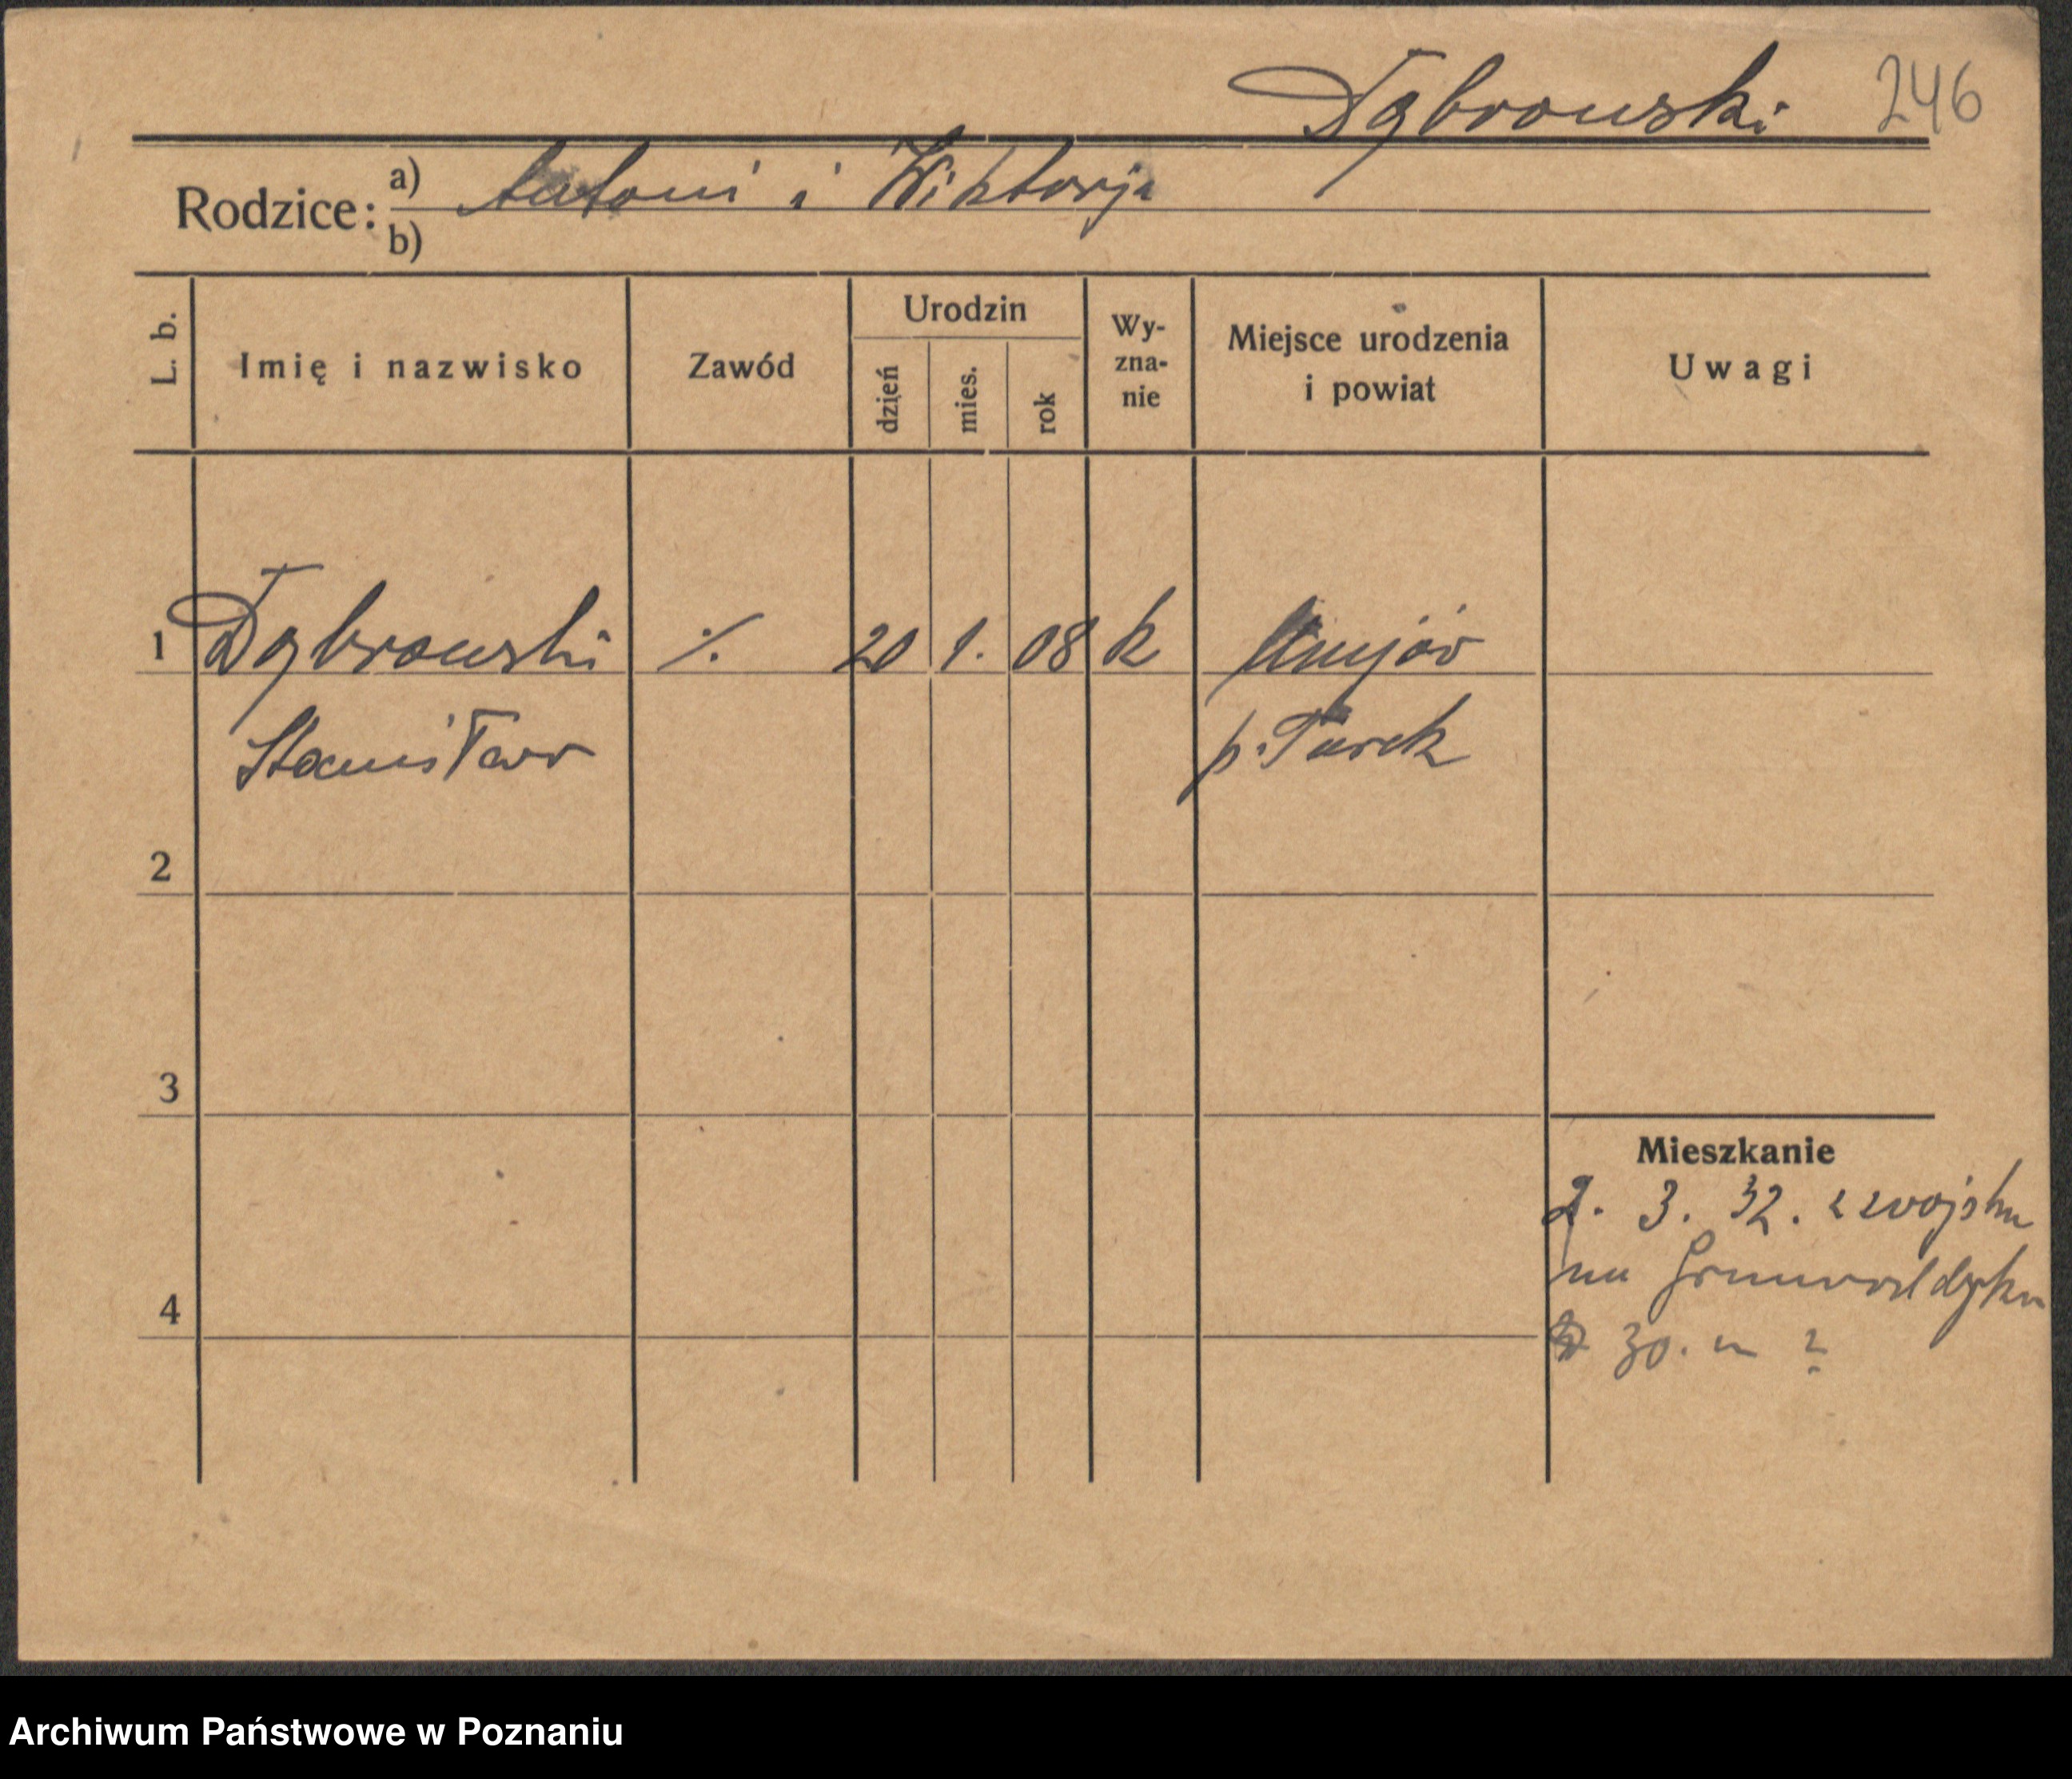 Dąbrowski 246
Rodzice: a) Antoni i Wiktorja
b)
L. b. Imię i nazwisko Zawód Urodzin dzień mies. rok Wy-zna-nie Miejsce urodzenia i powiat Uwagi
1 Dąbrowski ./. 20 1. 08 k Uniejów
Stanisław p. Turek
2
3
Mieszkanie
2. 3. 32. z wojska
na Grunwaldzką
4
30. m ?
Archiwum Państwowe w Poznaniu